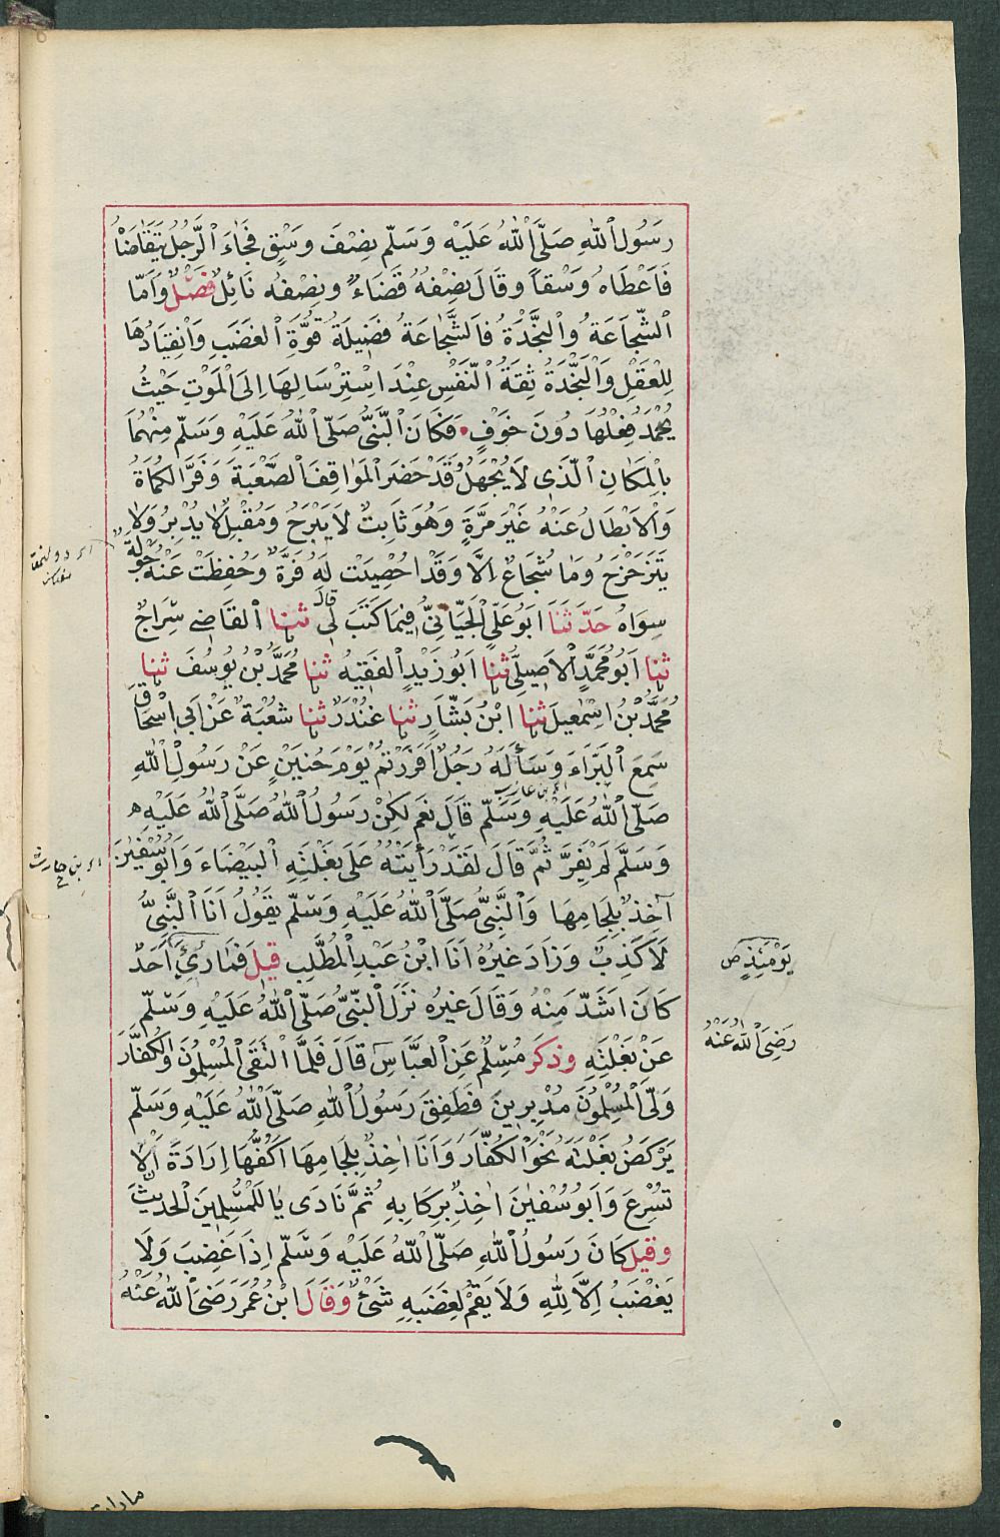 رَسُولُ اللهِ صَلَّى اللهُ عَلَيْهِ وَسَلَّمَ نِصْفَ وَسْقٍ فَجَاءَ الرَّجُلُ يَتَقَاضَاهُ
فَاَعْطَاهُ وَسْقاً وَقَالَ نِصْفُهُ قَضَاءٌ وَنِصْفُهُ نَائِلٌ فَصْلٌ وَاَمَّا
الشَّجَاعَةُ وَالنَّجْدَةُ فَالشَّجَاعَةُ فَضِيلَةُ قُوَّةِ الْغَضَبِ وَانْقِيَادُهَا
لِلْعَقْلِ وَالنَّجْدَةُ ثِقَةُ النَّفْسِ عِنْدَ اسْتِرْسَالِهَا اِلَى الْمَوْتِ حَيْثُ
يُحْمَدُ فِعْلُهَا دُونَ خَوْفٍ فَكَانَ النَّبِيُّ صَلَّى اللهُ عَلَيْهِ وَسَلَّمَ مِنْهُمَا
بِالْمَكَانِ الَّذِي لَا يُجْهَلُ قَدْ حَضَرَ الْمَوَاقِفَ الصَّعْبَةَ وَفَرَّ الْكُمَاةُ
وَالْاَبْطَالُ عَنْهُ غَيْرَ مَرَّةٍ وَهُوَ ثَابِتٌ لَا يَبْرَحُ وَمُقْبِلٌ لَا يُدْبِرُ وَلَا
يَتَزَحْزَحُ وَمَا شُجَاعٌ اِلَّا وَقَدْ اُحْصِيَتْ لَهُ فَرَّةٌ وَحُفِظَتْ عَنْهُ جَوْلَةٌ
سِوَاهُ حَدَّثَنَا اَبُو عَلِيٍّ الْجَيَّانِيُّ فِيمَا كَتَبَ لِي قَالَ ثنا الْقَاضِي سِرَاجٌ
ثنا اَبُو مُحَمَّدٍ الْاَصِيلِيُّ ثنا اَبُو زَيْدٍ الْفَقِيهُ ثنا مُحَمَّدُ بْنُ يُوسُفَ ثنا
مُحَمَّدُ بْنُ اِسْمٰعِيلَ ثنا ابْنُ بَشَّارٍ ثنا غُنْدَرٌ ثنا شُعْبَةُ عَنْ اَبِي اِسْحَاقَ
سَمِعَ الْبَرَاءَ وَسَأَلَهُ رَجُلٌ اَفَرَرْتُمْ يَوْمَ حُنَيْنٍ عَنْ رَسُولِ اللهِ
ابن عازب
صَلَّى اللهُ عَلَيْهِ وَسَلَّمَ قَالَ نَعَمْ لٰكِنْ رَسُولُ اللهِ صَلَّى اللهُ عَلَيْهِ
وَسَلَّمَ لَمْ يَفِرَّ ثُمَّ قَالَ لَقَدْ رَأَيْتُهُ عَلَى بَغْلَتِهِ الْبَيْضَاءَ وَاَبُو سُفْيٰنَ
آخِذٌ بِلِجَامِهَا وَالنَّبِيُّ صَلَّى اللهُ عَلَيْهِ وَسَلَّمَ يَقُولُ اَنَا النَّبِيُّ
لَا كَذِبَ وَزَادَ غَيْرُهُ اَنَا ابْنُ عَبْدِ الْمُطَّلِبِ قِيلَ فَمَا رُئِيَ اَحَدٌ
يَوْمَئِذٍ ص
كَانَ اَشَدَّ مِنْهُ وَقَالَ غَيْرُهُ نَزَلَ النَّبِيُّ صَلَّى اللهُ عَلَيْهِ وَسَلَّمَ
رَضِيَ اللهُ عَنْهُ
عَنْ بَغْلَتِهِ وَذَكَرَ مُسْلِمٌ عَنِ الْعَبَّاسِ قَالَ فَلَمَّا الْتَقَى الْمُسْلِمُونَ وَالْكُفَّارُ
وَلَّى الْمُسْلِمُونَ مُدْبِرِينَ فَطَفِقَ رَسُولُ اللهِ صَلَّى اللهُ عَلَيْهِ وَسَلَّمَ
يَرْكَضُ بَغْلَتَهُ نَحْوَ الْكُفَّارِ وَاَنَا اٰخِذٌ بِلِجَامِهَا اَكُفُّهَا اِرَادَةَ اَلَّا
تُسْرِعَ وَاَبُو سُفْيٰنَ اٰخِذٌ بِرِكَابِهِ ثُمَّ نَادَى يَا لَلْمُسْلِمِينَ الْحَدِيثَ
وَقِيلَ كَانَ رَسُولُ اللهِ صَلَّى اللهُ عَلَيْهِ وَسَلَّمَ اِذَا غَضِبَ وَلَا
يَغْضَبُ اِلَّا لِلّٰهِ وَلَا يَقُمْ لِغَضَبِهِ شَيْءٌ وَقَالَ ابْنُ عُمَرَ رَضِيَ اللهُ عَنْهُ